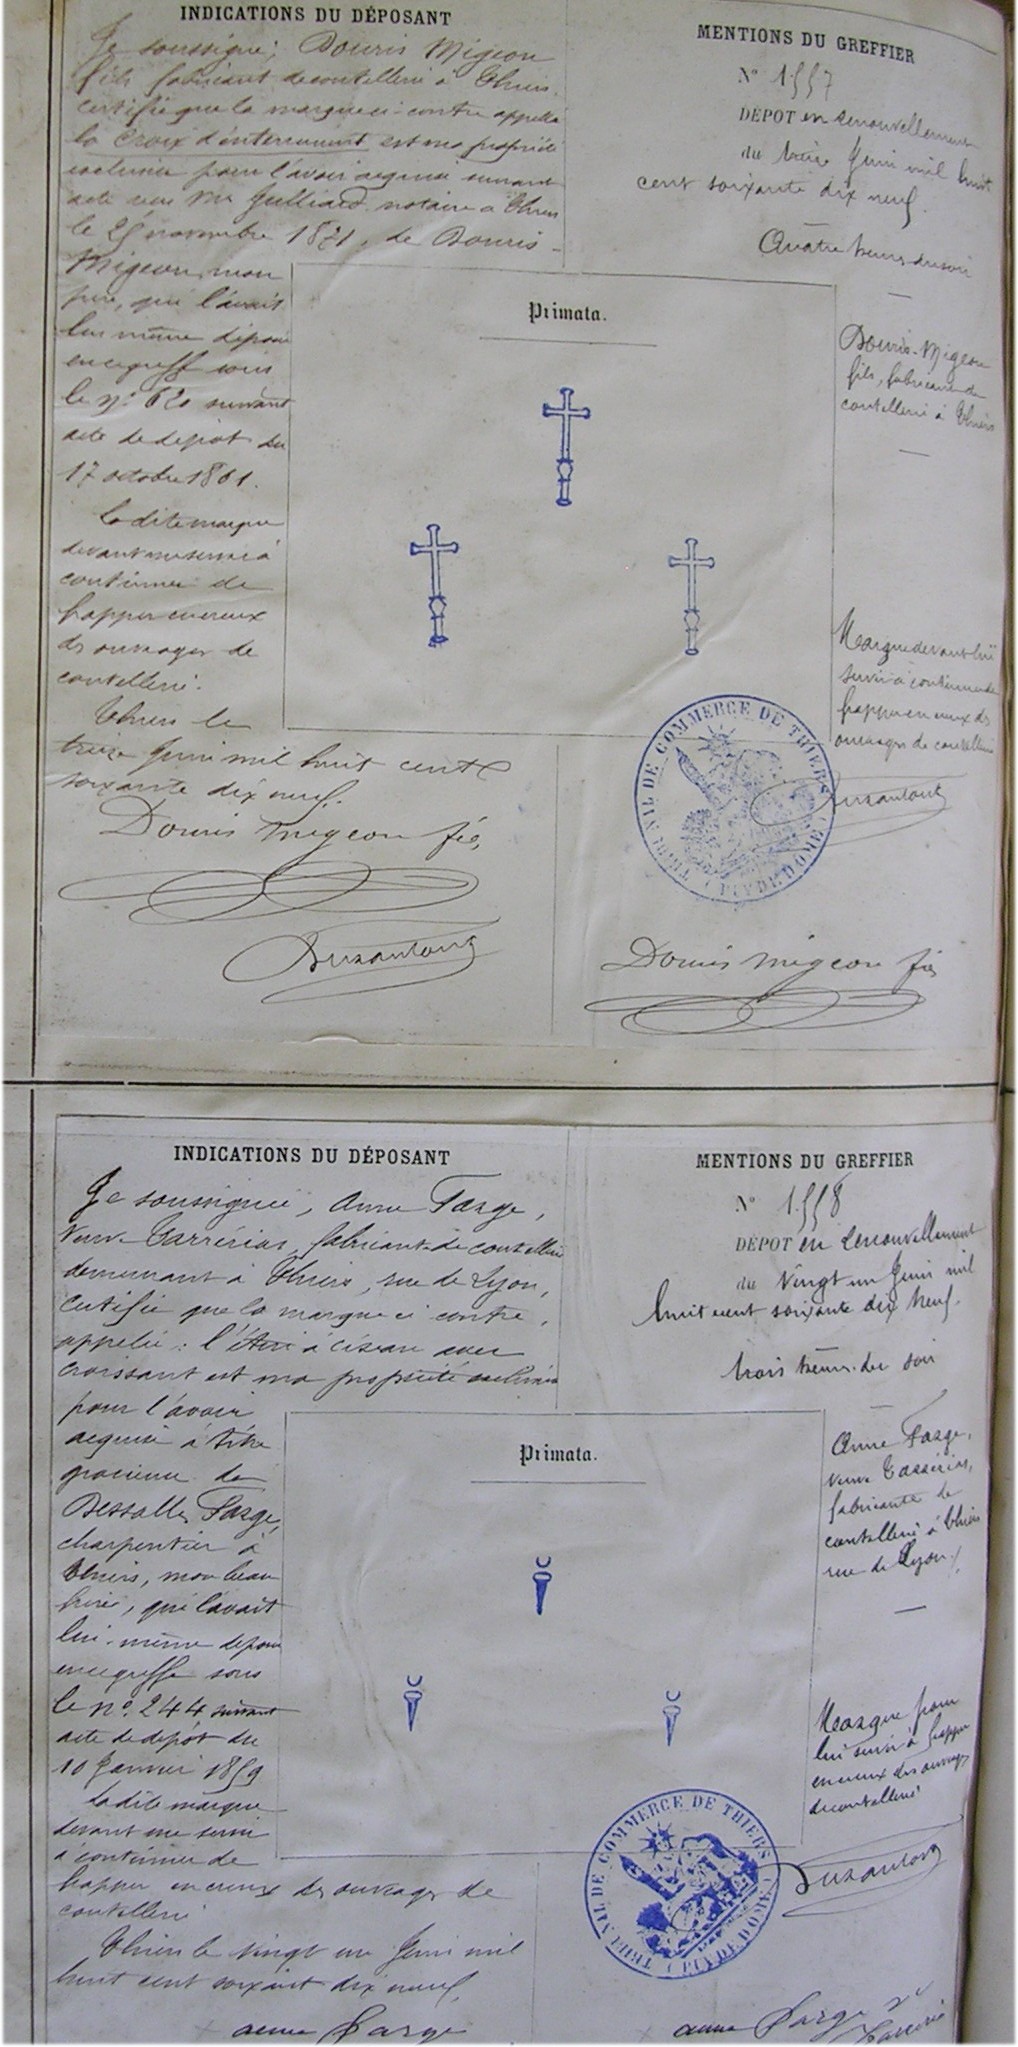 INDICATIONS DU DÉPOSANT
Je soussigné, Douris Migeon
fils fabricant de coutellerie à Thiers
certifie que la marque ci-contre appelée
la Croix d'enterrement est ma propriété
exclusive pour l'avoir acquise suivant
acte reçu Me notaire à Thiers
le novembre 1871, de Douris-
Migeon, mon
père, qui l'avait
lui même déposée
en ce greffe sous
le n° 620 suivant
acte de dépôt du
17 octobre 1861.
Ladite marque
devant me servir à
continuer de
frapper en creux
des ouvrages de
coutellerie.
Thiers le
treize Juin mil huit cent
soixante dix neuf.
Douris Migeon fils
MENTIONS DU GREFFIER
N° 1557
DÉPÔT en renouvellement
du treize Juin mil huit
cent soixante dix neuf.
Quatre heures du soir
Primata.
Douris-Migeon
fils, fabricant de
coutellerie à Thiers
Marque devant lui
servir à continuer de
frapper en creux des
ouvrages de coutellerie
TRIBUNAL DE COMMERCE DE THIERS
(PUY DE DOME)
Douris Migeon fils
INDICATIONS DU DÉPOSANT
Je soussignée, Anne Farge,
Veuve fabricante de coutellerie
demeurant à Thiers, rue de Lyon,
certifie que la marque ci contre,
appelée : l' à ciseau avec
croissant est ma propriété exclusive
pour l'avoir
acquise à titre
gracieux de
Dessalles Farge,
charpentier à
Thiers, mon beau
frère, qui l'avait
lui-même déposée
en ce greffe sous
le n° 244 suivant
acte de dépôt du
10 Janvier 1859
Ladite marque
devant me servir
à continuer de
frapper en creux des ouvrages de
coutellerie
Thiers le vingt un Juin mil
huit cent soixante dix neuf.
anne Farge
MENTIONS DU GREFFIER
N° 1558
DÉPÔT en renouvellement
du vingt un Juin mil
huit cent soixante dix neuf.
trois heures du soir
Primata.
Anne Farge,
veuve
fabricante de
coutellerie à Thiers
rue de Lyon.
Marque pour
lui servir à frapper
en creux des ouvrages
de coutellerie
TRIBUNAL DE COMMERCE DE THIERS
(PUY DE DOME)
anne Farge